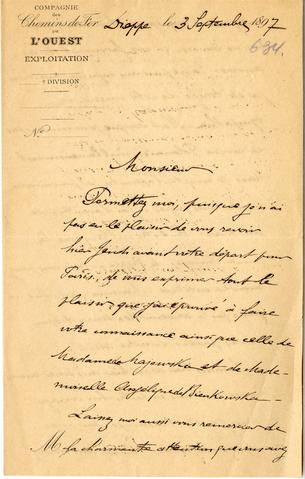 COMPAGNIE
des
Chemins de Fer
DE
L'OUEST
EXPLOITATION
DIVISION
Dieppe le 3 Septembre 1897
634.
No
Monsieur
Permettez moi, puisque je n'ai
pas eu le plaisir de vous revoir
hier Jeudi avant votre départ pour
Paris, de vous exprimer tout le
plaisir que j'ai éprouvé à faire
votre connaissance ainsi que celle de
Madame Majewska et de Made-
moiselle Angélique Bienkowska.
Laissez moi aussi vous remercier de
la charmante attention que vous avez